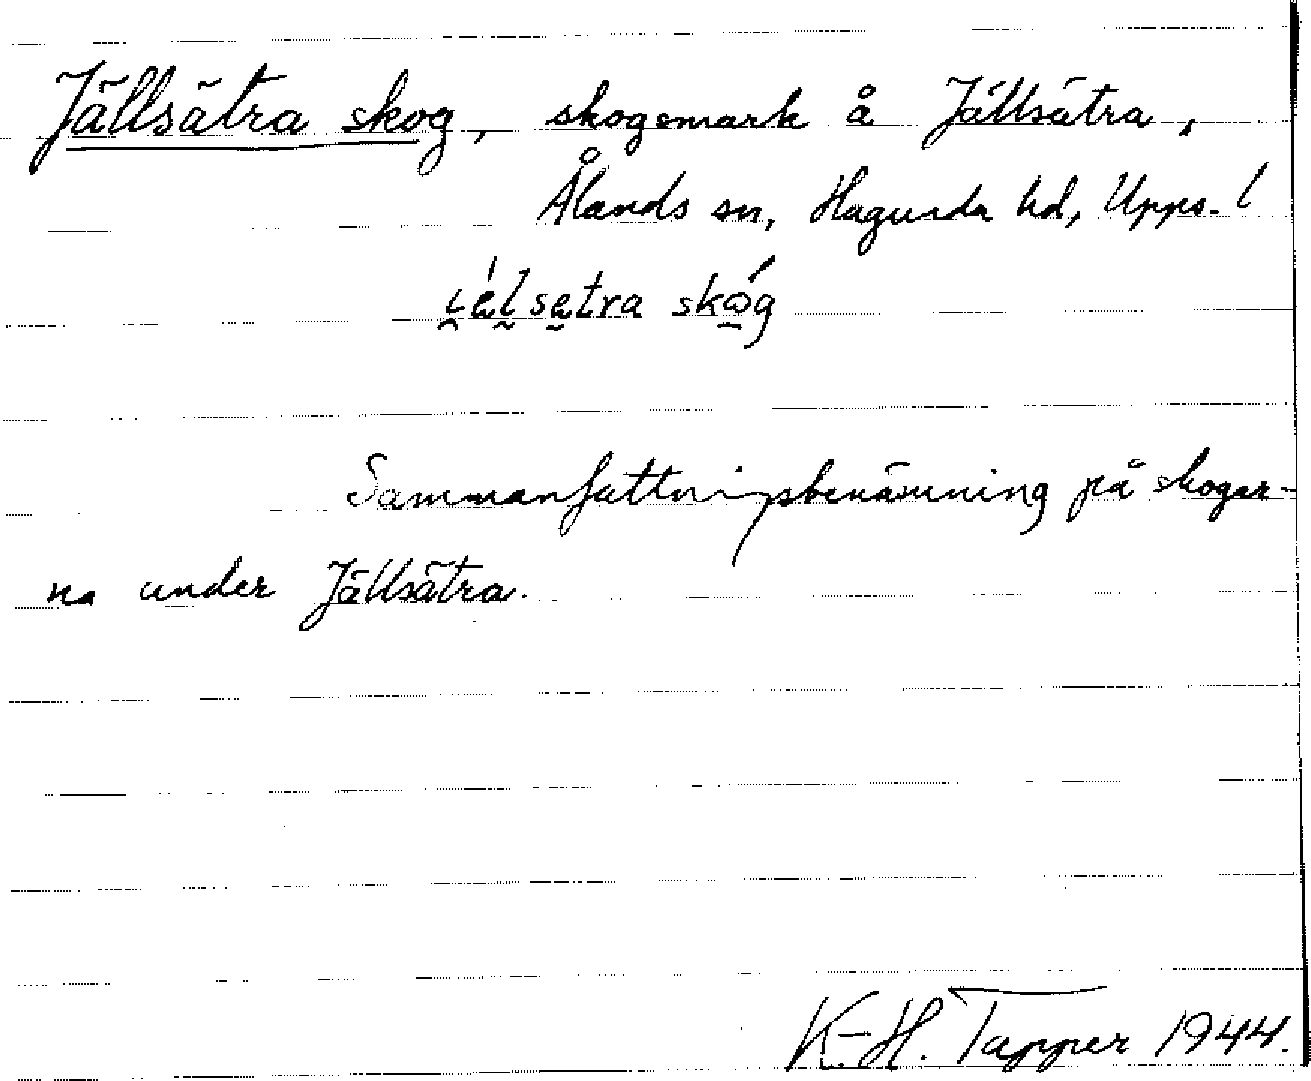 Jällsätra skog, skogsmark å Jällsätra,
Ålands sn, Hagunda hd, Upps. l
i̯é̮l̰se̮tra skώ̱g
Sammanfattningsbenämning på skogar-
na under Jällsätra.
K.-H. Tapper 1944.